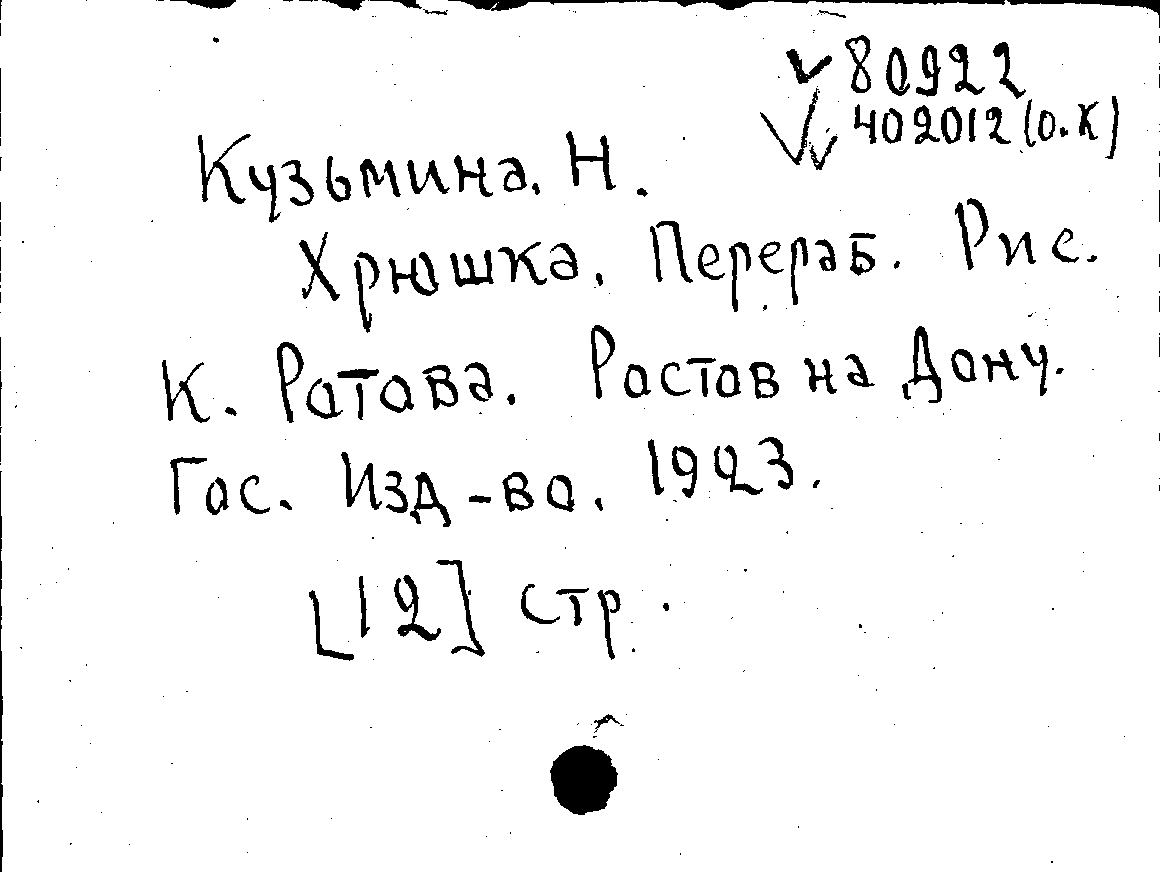 80922
402012 (о.к)
Кузьмина. Н.
Хрюшка. Перераб. Рис.
К. Ратова. Ростов на Дону.
Гос. Изд-во. 1923.
[12] стр.